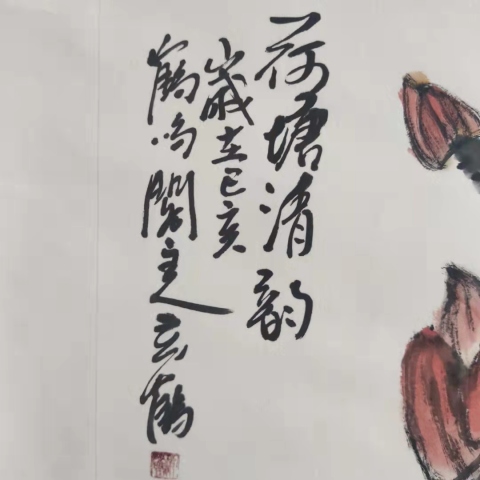 荷塘清韵
岁在己亥
鹤鸣阁主人云鹤